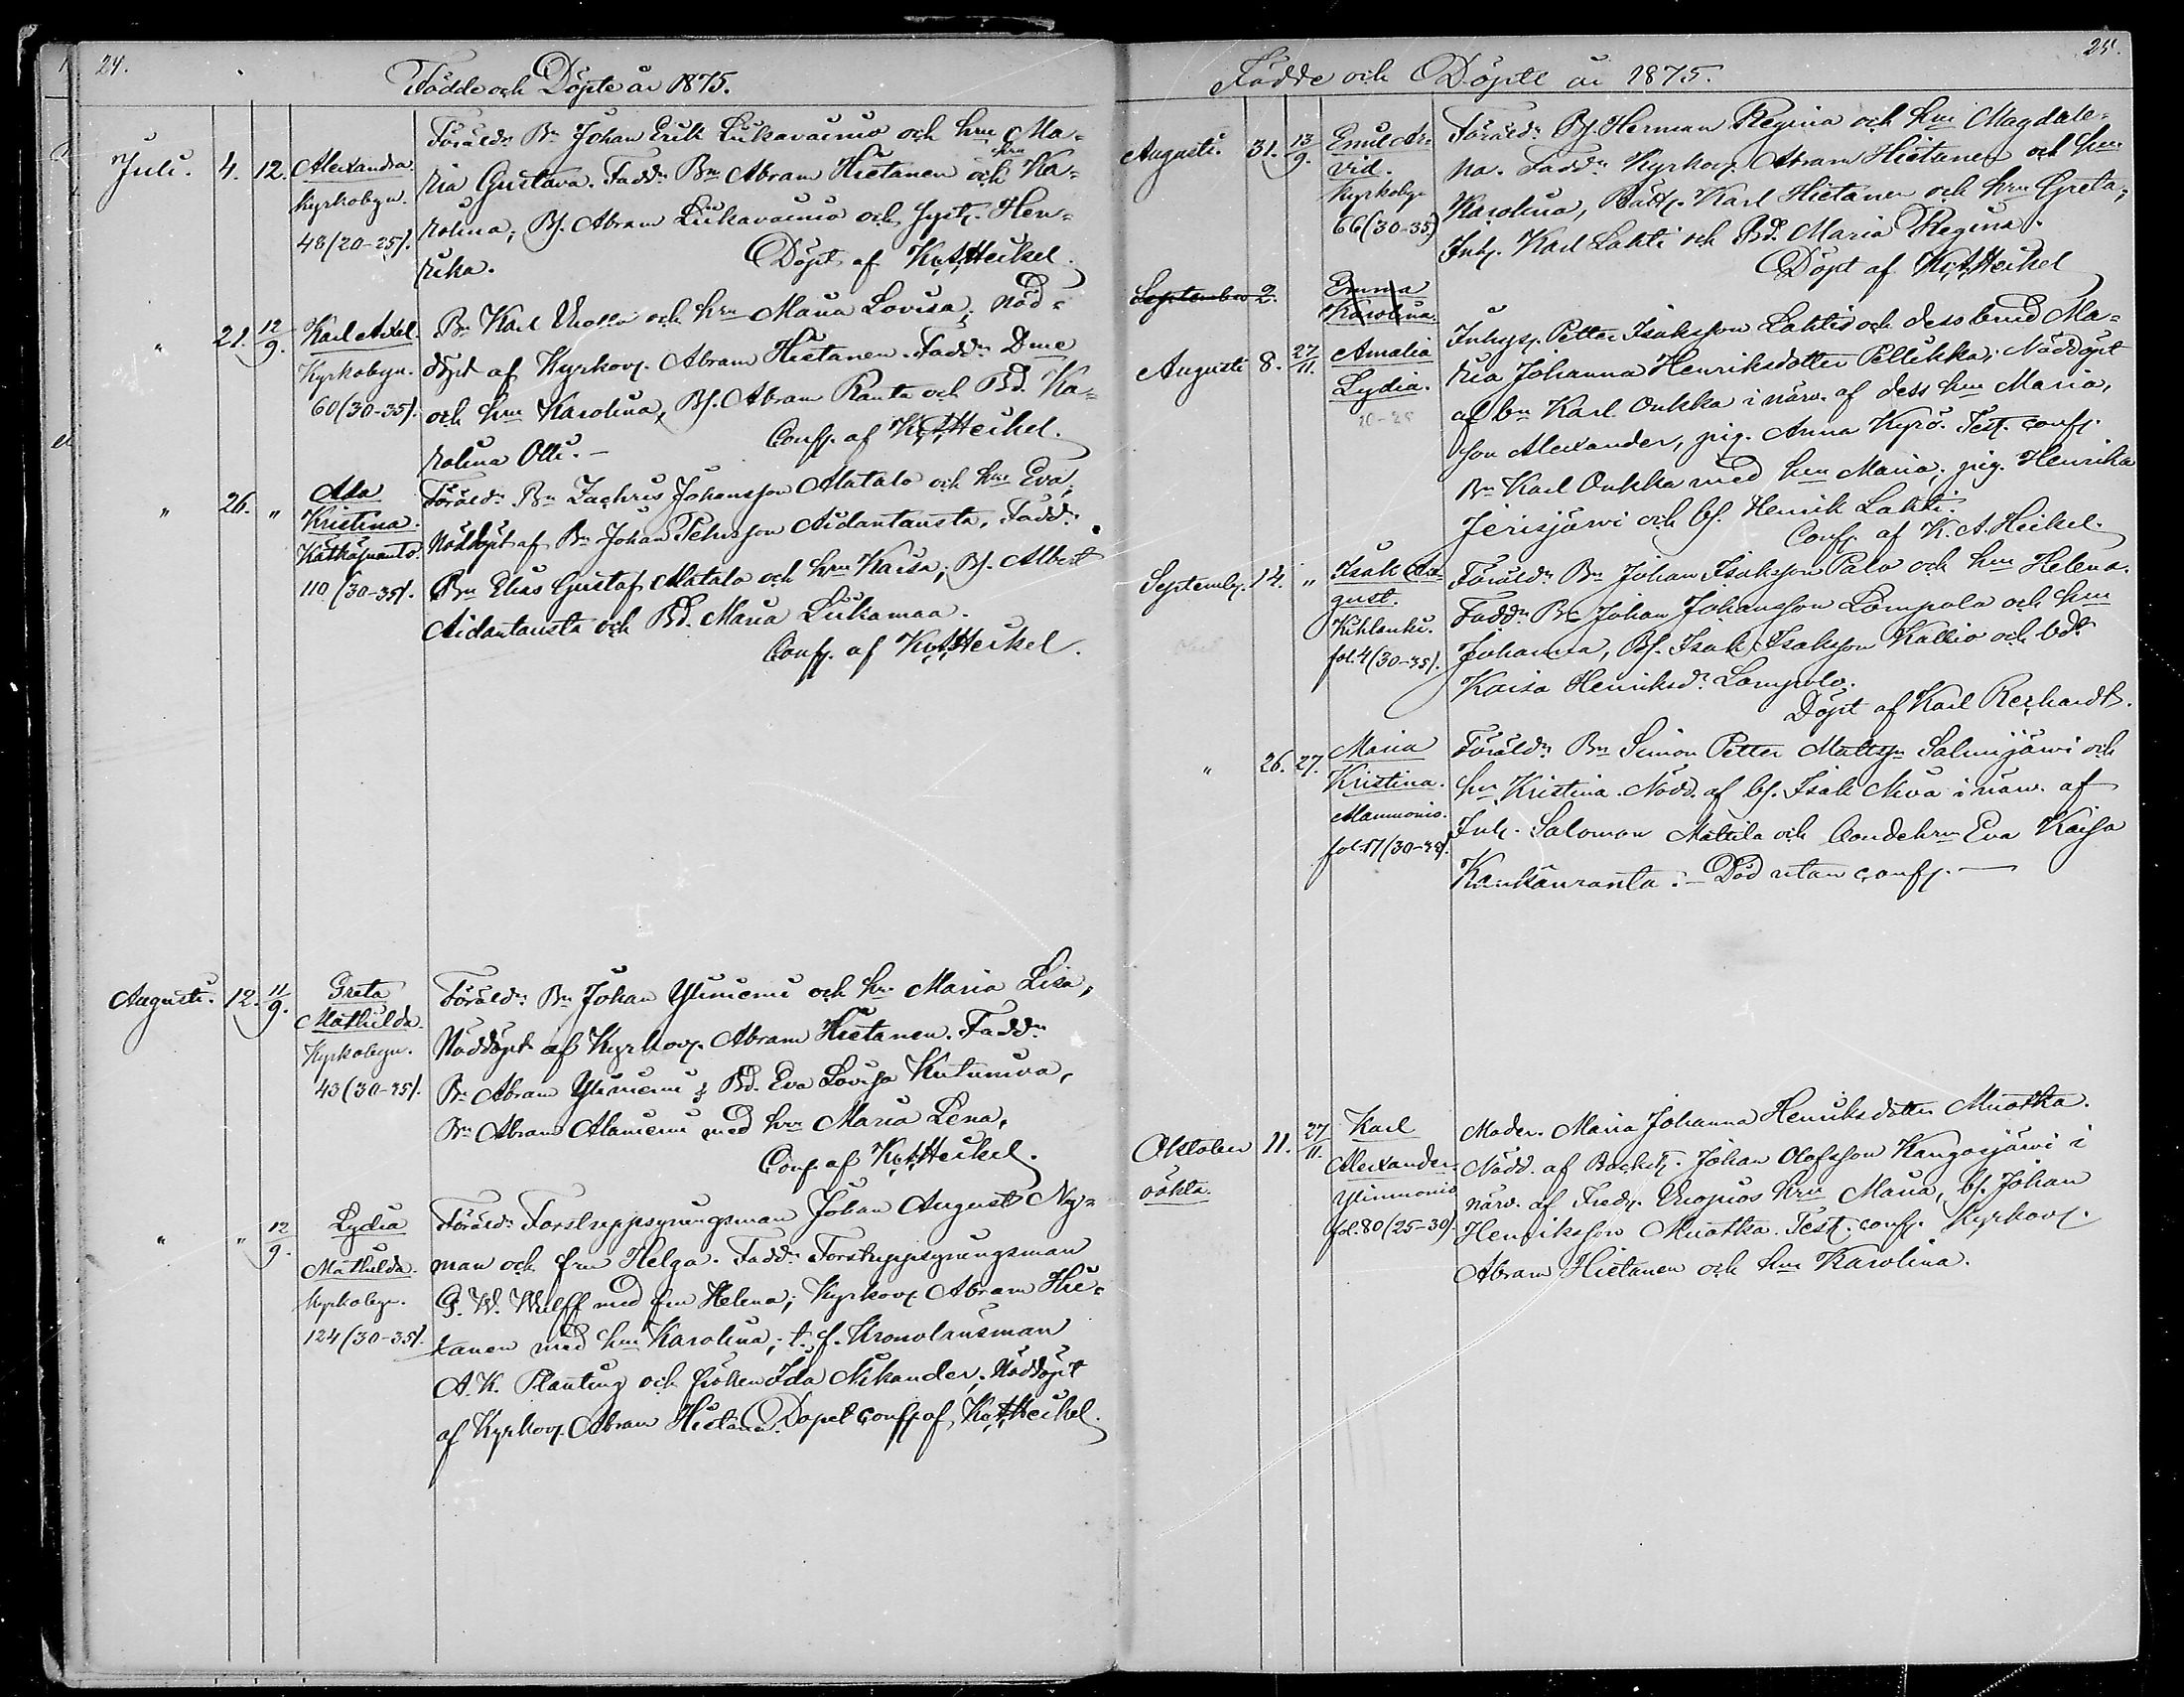 24.
Födde och Döpte år 1875.
Juli. 4. 12. Alexandra. Kyrkobyn. 48 (20-25).
Föräldr. Bn Johan Erik Liikavainio och hru Ma-
ria Gustava. Faddr Bn Abram Hietanen och hru Ka-
rolina; Bs. Abram Liikavainio och Hen-
rika.
Döpt af K. A. Heikel.
" 21. 12/9. Karl Axel. Kyrkobyn. 60 (30-35).
Bn Karl och hru Maria Lovisa; nöd-
döpt af Kyrkov. Abram Hietanen. Faddr Dme
och hru Karolina, Bs. Abram Ranta och Bd. Ka-
rolina Olli. -
Conf. af K. A. Heikel.
" 26. " Ada Kristina. Kätkäsuanto. 110 (30-35).
Föräldr. Bn Zachris Johansson Alatalo och hru Eva,
Nöddöpt af Bn Johan Petersson Aidantausta, Faddr.
Bn Elias Gustaf Alatalo och hru Kaisa; Bs. Albert
Aidantausta och Bd. Maria Liikamaa.
Conf. af K. A. Heikel.
Augusti. 12. 11/9. Greta Mathilda. Kyrkobyn. 43 (30-35).
Föräldr. Bn Johan Yliniemi och hru Maria Lisa,
Nöddöpt af Kyrkov. Abram Hietanen. Faddr
Bn Abram Yliniemi & Bd. Eva Lovisa Kutuniva,
Bn Abram Alaniemi med hru Maria Lena,
Conf. af K. A. Heikel.
" " 12/9. Lydia Mathilda. Kyrkobyn. 124 (30-35).
Föräldr Forstuppsyningsman Johan August Ny-
man och fru Helga. Faddr Forstuppsyningsman
G. W. Wulff med fru Helena; Kyrkov. Abram Hie-
tanen med hru Karolina; t. f. Kronolänsman
A. K. Planting och fröken Ida Nikander. Nöddöpt
af Kyrkov. Abram Hietanen. Dopet conf. af K. A. Heikel.
25.
Födde och Döpte år 1875.
Augusti. 31. 13/9. Emil Ar-
vid. Kyrkobyn 66 (30-35)
Föräldr. Bs. Herman Regina och hru Magdale-
na. Faddr. Kyrkov. Abram Hietanen och hru
Karolina, Karl Hietanen och hru Greta;
Inh. Karl Lahti och Bd. Maria Regina.
Döpt af K. A. Heikel
September 2. Emma Karolina.
Augusti 8. 27/11. Amalia Lydia. 20-25
Inhyss. Petter Isaksson Lahti och dess brud Ma-
ria Johanna Henriksdotter Pellikka; Nöddöpt
af bn Karl Oukka i närv. af dess hru Maria,
son Alexander, pig. Anna Kyrö. Test. conf.
Bn Karl Oukka med hru Maria; pig. Henrika
Jerisjärvi och bs. Henrik Lahti.
Conf. af K. A. Heikel.
Septemb. 14. " Isak Au-
gust. Kihlanki. fol. 4 (30-35).
Föräldr Bn Johan Isaksson Palo och hru Helena.
Faddr Bn Johan Johansson Lompolo och hru
Johanna, Bs. Isak Isaksson Kallio och bdr
Kaisa Henriksdr Lompolo.
Döpt af Karl Rechardt.
" 26. 27. Maria Kristina. Muonionis. fol. 17 (30-35).
Föräldr Bn Simon Petter Mattsn Salmijärvi och
hru Kristina. Nödd. af bs. Isak Niva i närv. af
Inh. Salomon Mattila och bondehru Eva Kaisa
Kaukanranta. - Död utan conf. -
Oktober 11. 27/11. Karl Alexander. Ylimuonio fol. 80 (25-30)
oäkta.
Moder. Maria Johanna Henriksdotter Muotka.
Nödd. af Johan Olofsson Kangosjärvi i
närv. af hru Maria, bs. Johan
Henriksson Muotka. Test. conf. Kyrkov.
Abram Hietanen och hru Karolina.